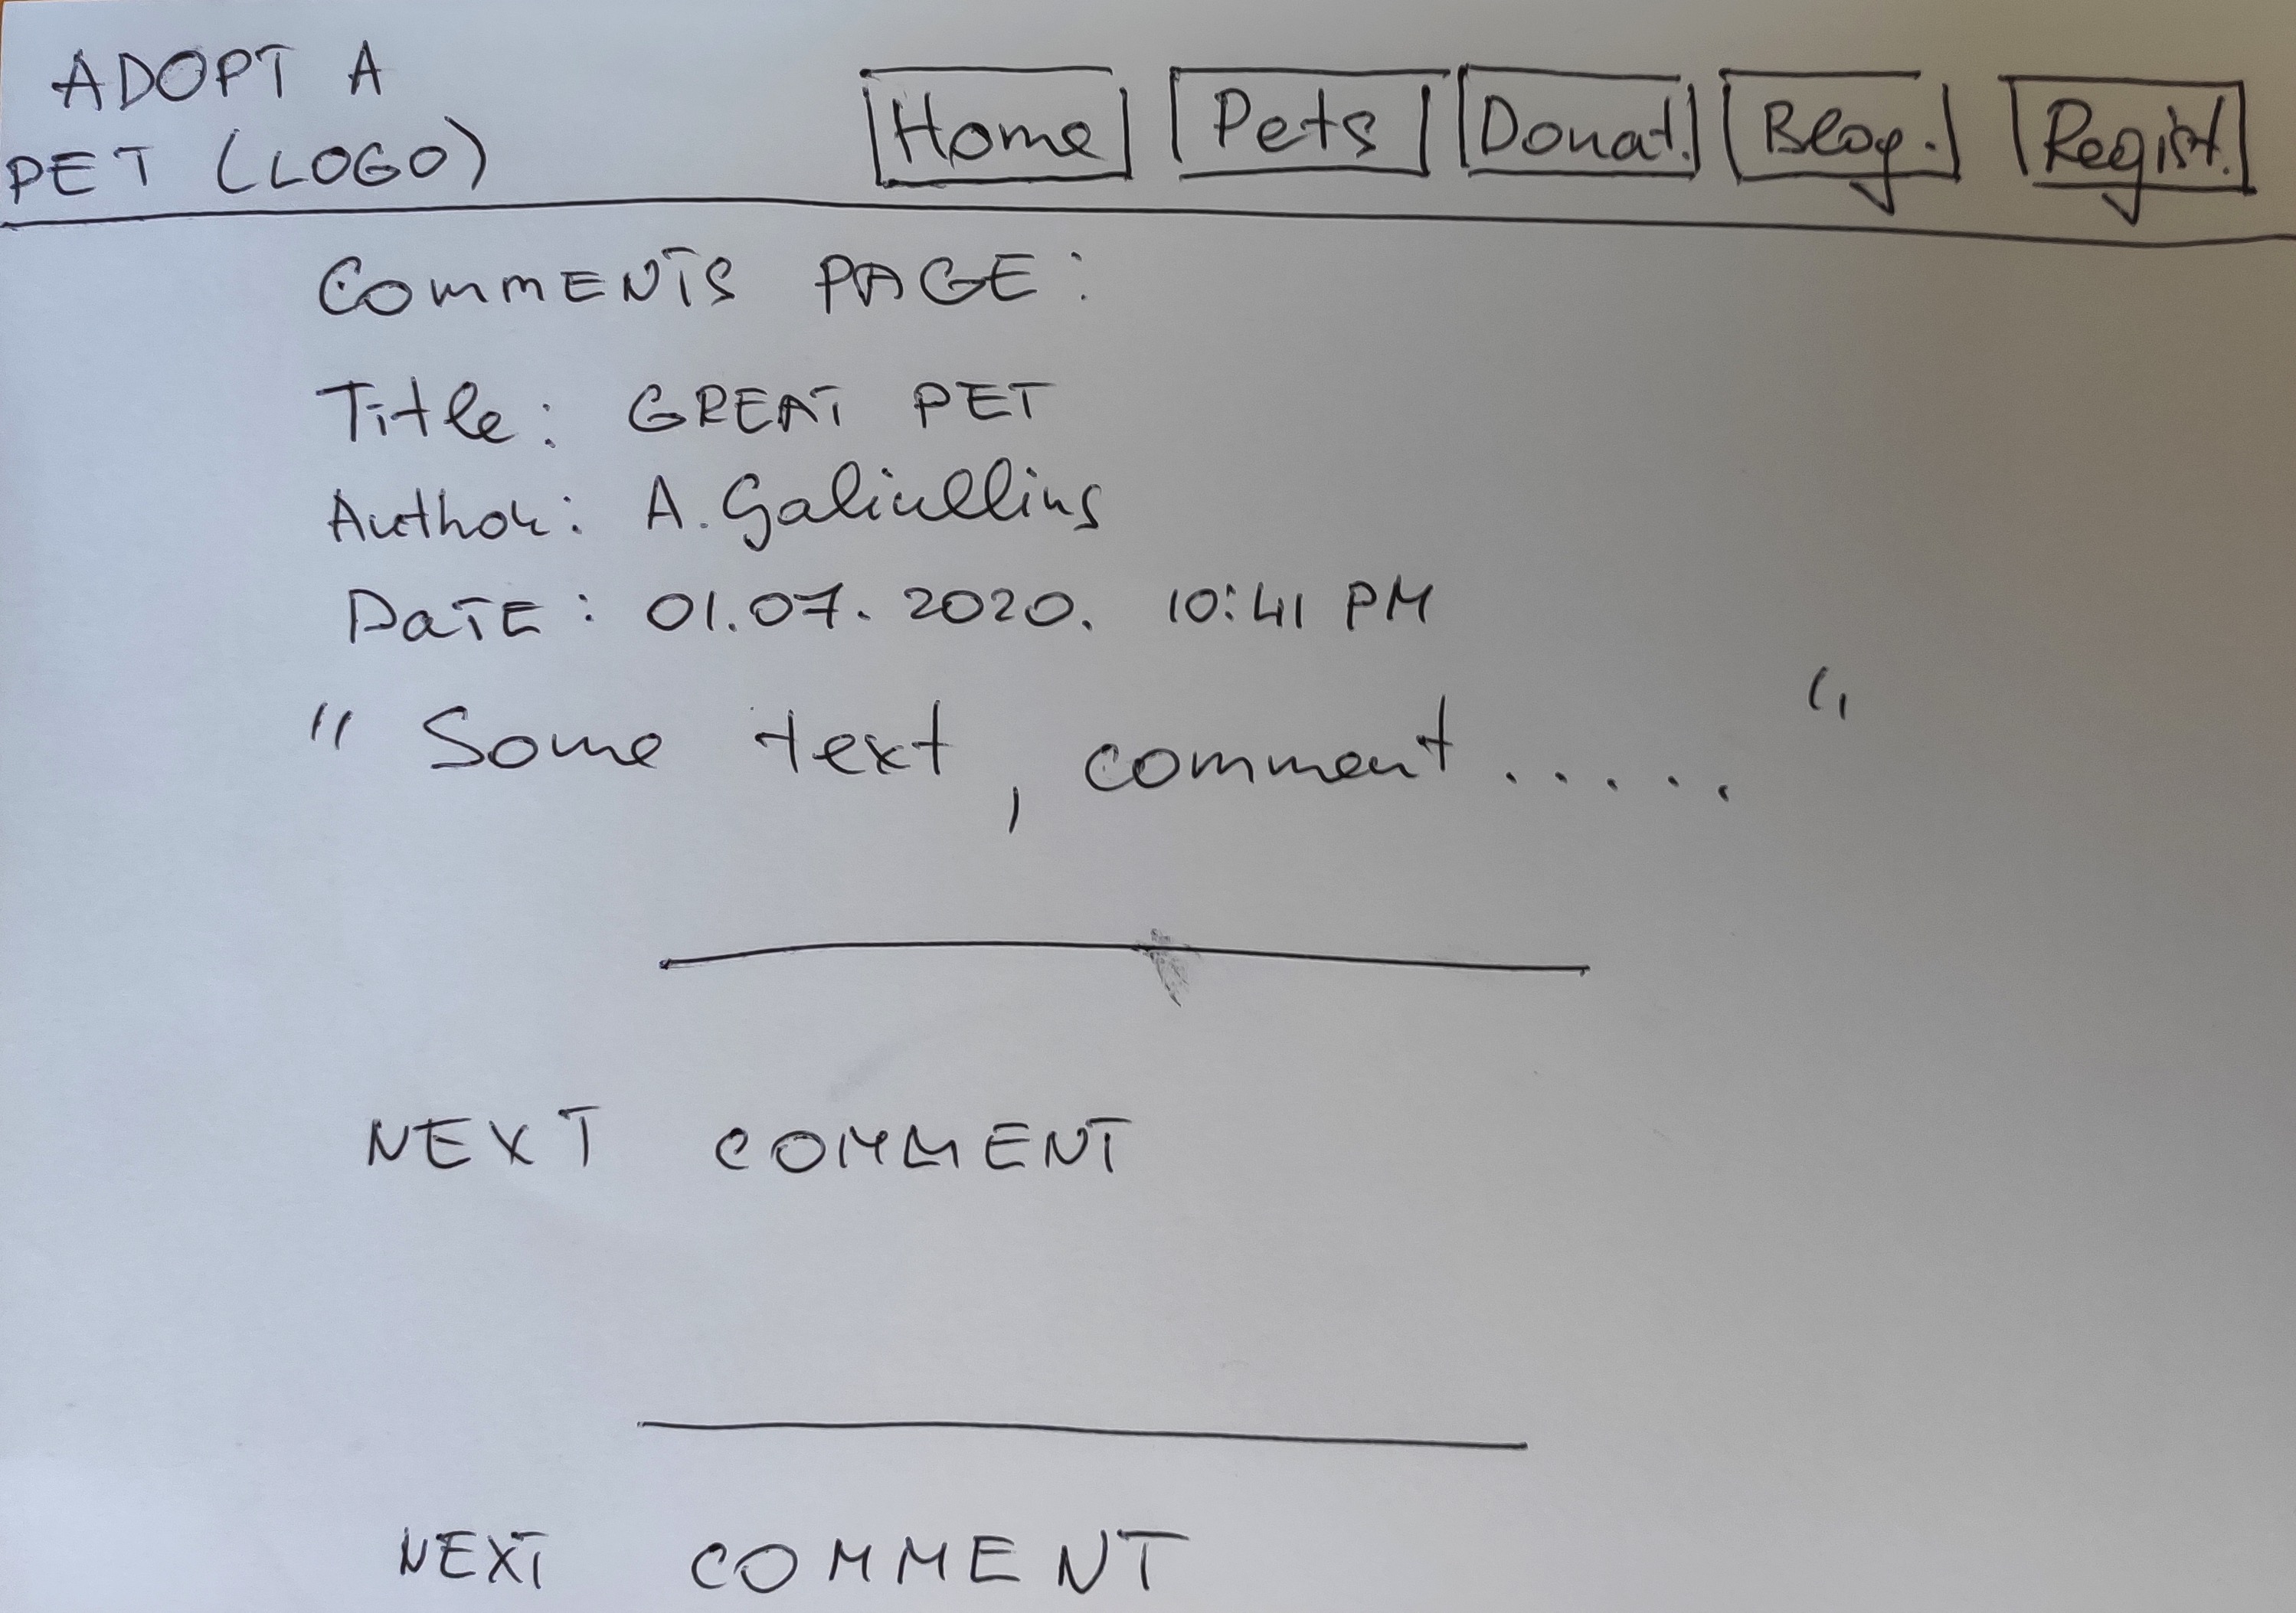 ADOPT A
PET (LOGO)
Home Pets Donat. Blog. Regist.
COMMENTS PAGE:
Title: GREAT PET
Author: A. Galiullins
DATE: 01.07.2020. 10:41 PM
"Some text, comment ....."
NEXT COMMENT
NEXT COMMENT